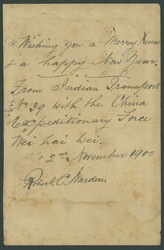 Wishing you a Merry Xmas
& a happy New Year,
From Indian Transport
No 39 with the China
Expeditionary Force
Wei hai Wei.
2nd November 1900
Robert C. Warden